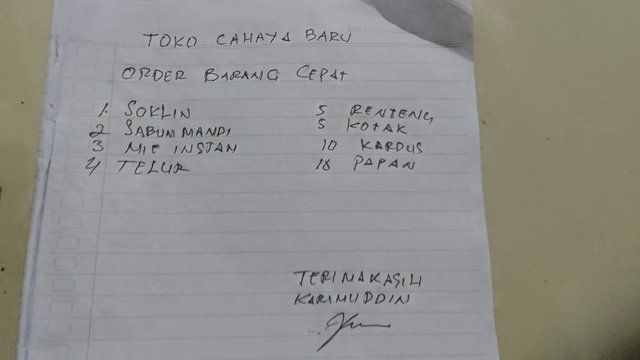 TOKO CAHAYA BARU
ORDER BARANG CEPAT
1. SOKLIN 5 RENTENG
2 SABUM MANDI 5 KOTAK
3 MIE INSTAN 10 KARDUS
4 TELUR 16 PAPAN
TERIMAKASIH
KARIMUDDIN